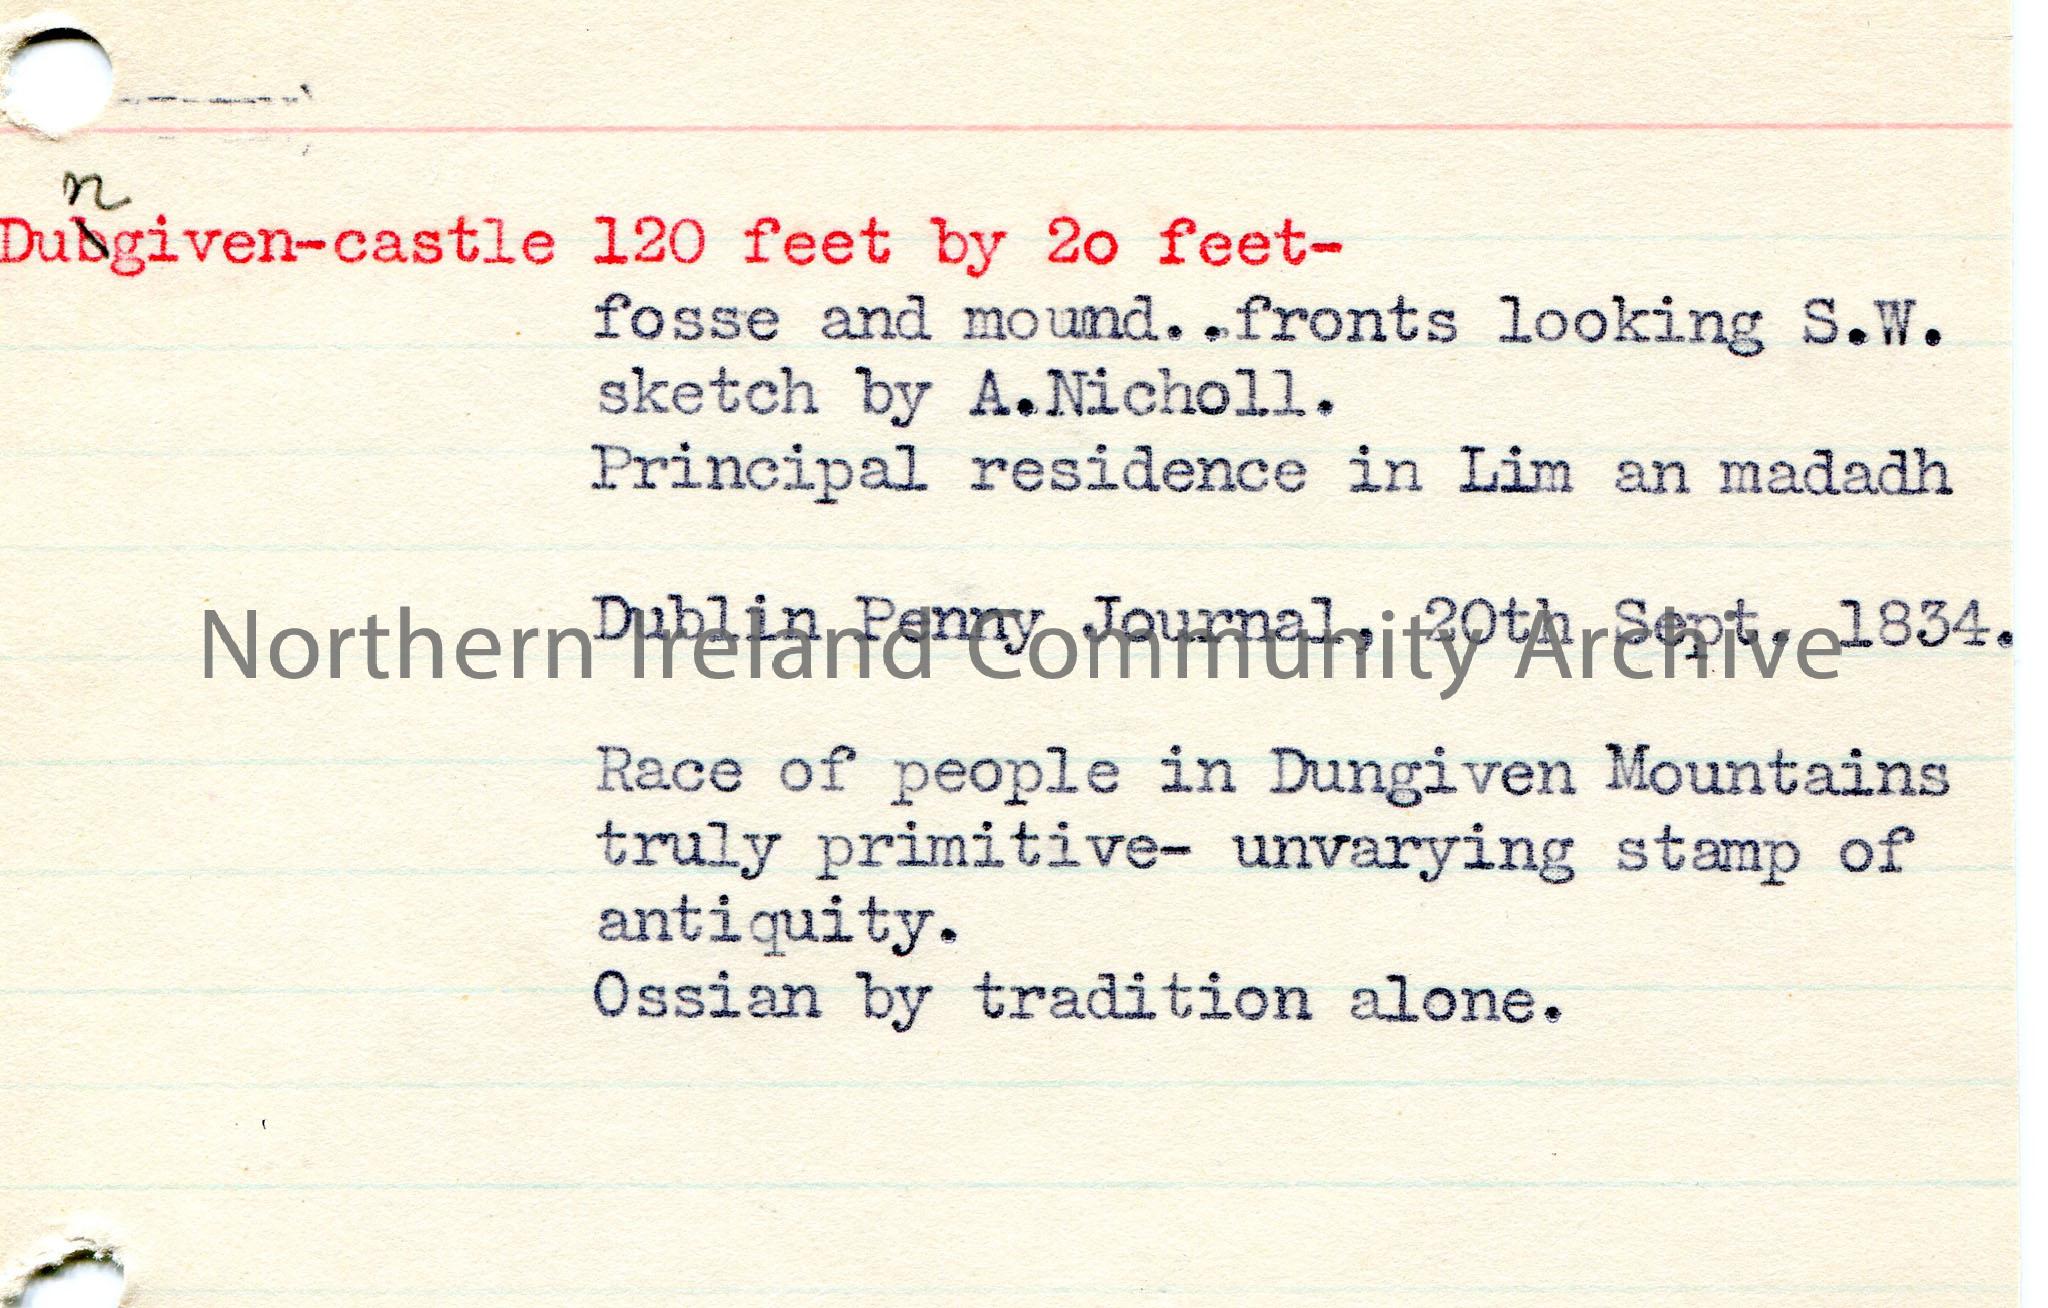 n
Dubgiven-castle 120 feet by 2o feet-
fosse and mound..fronts looking S.W.
sketch by A.Nicholl.
Principal residence in Lim an madadh
Dublin Penny Journal, 20th Sept. 1834.
Northern Ireland Community Archive
Race of people in Dungiven Mountains
truly primitive- unvarying stamp of
antiquity.
Ossian by tradition alone.